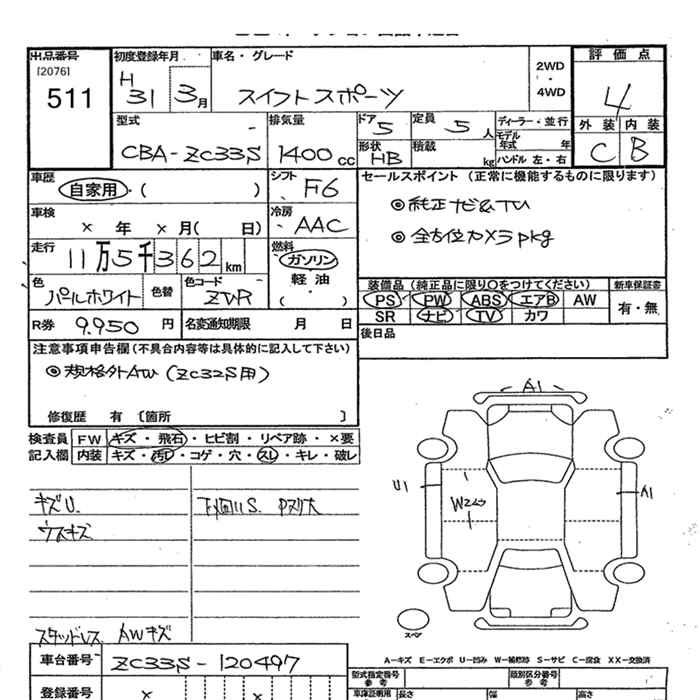 出品番号
[2076]
511
初度登録年月
H 31 3月
車名・グレード
スイフトスポーツ
2WD
・
4WD
評価点
4
外装 内装
C B
型式
CBA-ZC33S
排気量
1400cc
ドア
5
定員
5人
ディーラー・並行
モデル年式 年
形状
HB
積載 kg
ハンドル 左・右
車歴
自家用・( )
シフト
・F6
車検
× 年 × 月( 日)
冷房
・AAC
走行
11万5千362km
燃料
ガソリン
軽油
・( )
色
パールホワイト
色替
色コード
ZVR
R券 9,950 円
名変通知期限 月 日
セールスポイント (正常に機能するものに限ります)
◎純正ナビ&TV
◎全方位カメラpkg
装備品(純正品に限り○をつけてください)
PS PW ABS エアB AW
SR ナビ TV カワ
新車保証書
有・無
後日品
注意事項申告欄(不具合内容等は具体的に記入して下さい)
◎規格外AW(ZC32S用)
修復歴 有 [箇所 ]
検査員記入欄
FW キズ・飛石・ヒビ割・リペア跡・×要
内装 キズ・汚レ・コゲ・穴・スレ・キレ・破レ
キズU.
ウスキズ
下回りS.
スタッドレス AWキズ
A1
U1
W2
A1
スペア
車台番号 ZC33S-120497
A-キズ E-エクボ U-凹み W-補修跡 S-サビ C-腐食 XX-交換済
型式指定番号
参考
類別区分番号
参考
登録番号
車庫証明用
長さ
幅
高さ